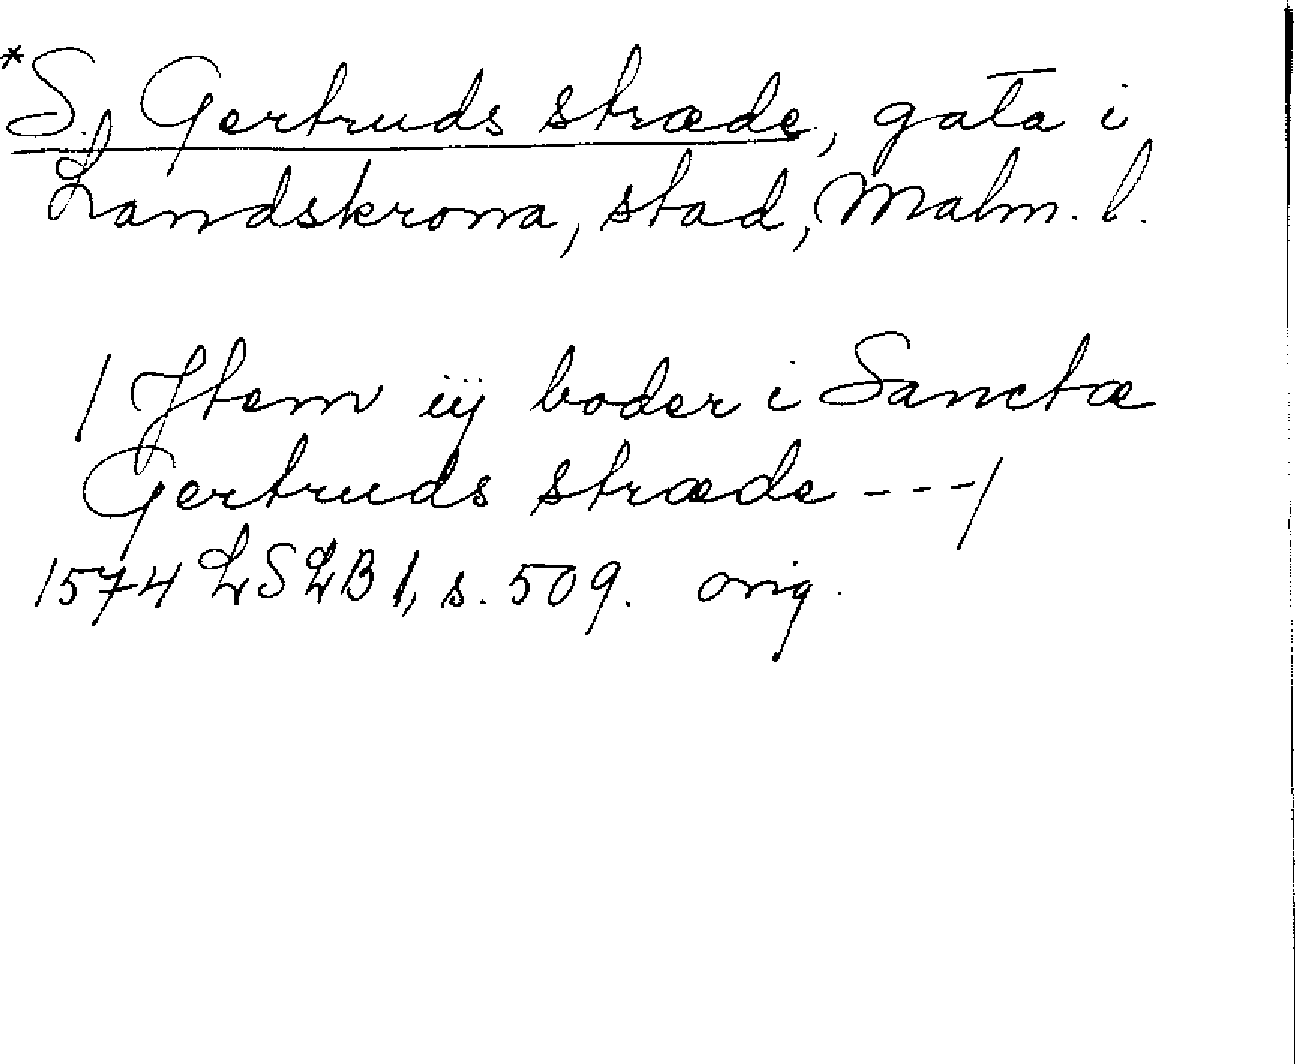 *S. Gertruds stræde, gata i
Landskrona, stad, Malm. l.
/ Jtem iij boder i Sanctæ
Gertruds stræde ---/
1574 LSLB 1, s. 509. orig.